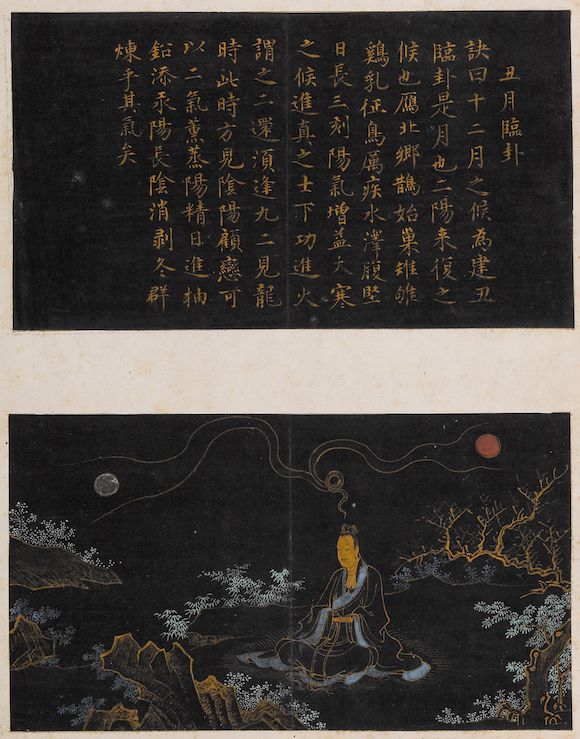 丑月臨卦
訣曰十二月之候為建丑
臨卦是月也二陽来復之
候也鴈北鄉鵲始巢雉雊
鷄乳征鳥厲疾水澤腹堅
日長三刻陽氣增益大寒
之候進真之士下功進火
謂之二還湏逢九二見龍
時此時方見陰陽顧戀可
以二氣薰蒸陽精日進抽
鉛添汞陽長陰消剥冬群
煉乎其氣矣